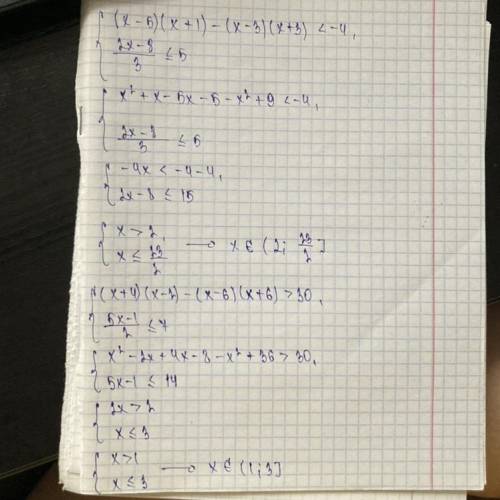 { (x-5)(x+1)-(x-3)(x+3)<-4,
(2x-8)/3 ≤5
{ x²+x-5x-5-x²+9<-4,
(2x-8)/3 ≤5
{ -4x<-4-4,
2x-8≤15
{ x>2,
x≤23/2 → x∈(2; 23/2]
{ (x+4)(x-2)-(x-6)(x+6)>30,
(5x-1)/2 ≤7
{ x²-2x+4x-8-x²+36>30,
5x-1≤14
{ 2x>2
x≤3
{ x>1
x≤3 → x∈(1;3]